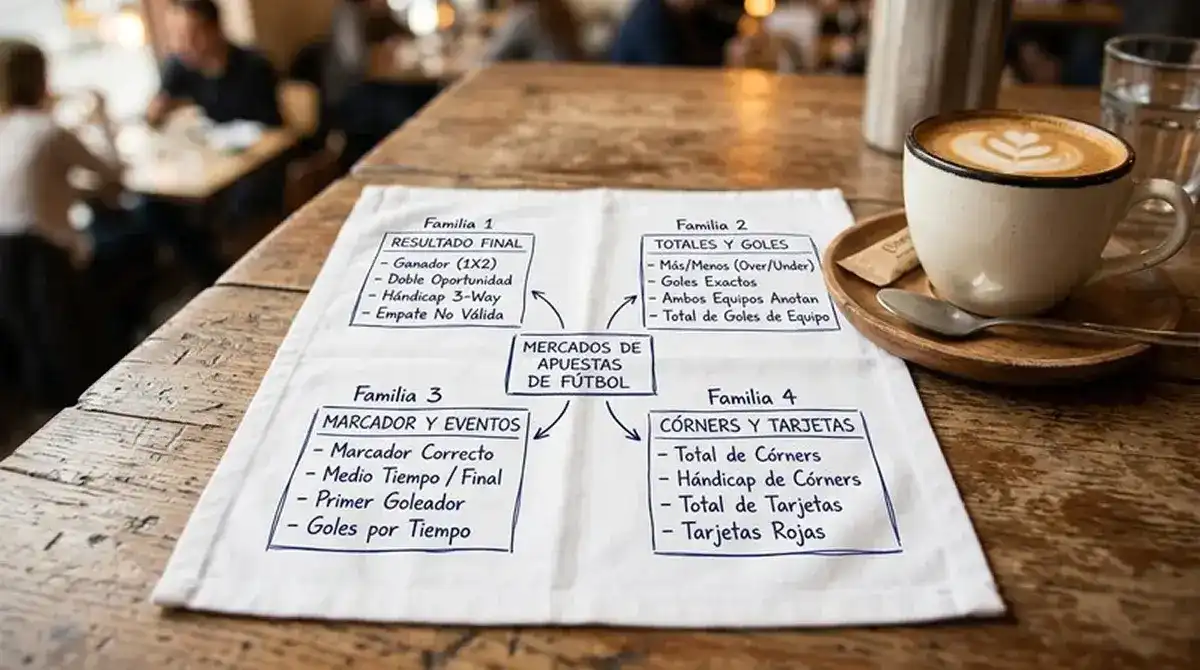 Familia 1
RESULTADO FINAL
- Ganador (1X2)
- Doble Oportunidad
- Hándicap 3-Way
- Empate No Válida
Familia 2
TOTALES Y GOLES
- Más/Menos (Over/Under)
- Goles Exactos
- Ambos Equipos Anotan
- Total de Goles de Equipo
MERCADOS DE
APUESTAS
DE FÚTBOL
Familia 3
MARCADOR Y EVENTOS
- Marcador Correcto
- Medio Tiempo / Final
- Primer Goleador
- Goles por Tiempo
Familia 4
CÓRNERS Y TARJETAS
- Total de Córners
- Hándicap de Córners
- Total de Tarjetas
- Tarjetas Rojas